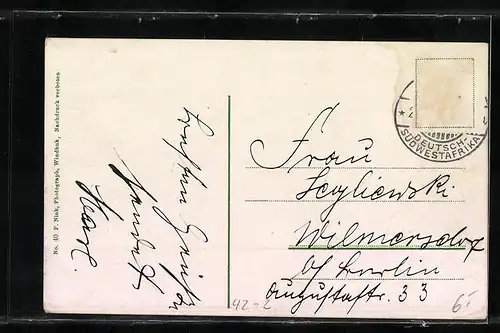 No. 10 F. Nink, Photograph, Windhuk, Nachdruck verboten
Besten Gruß
sendet
DEUTSCH-
SÜDWESTAFRIKA
Frau
Wilmersdorf
b/ Berlin
Augustastr. 33
42-2
6.-